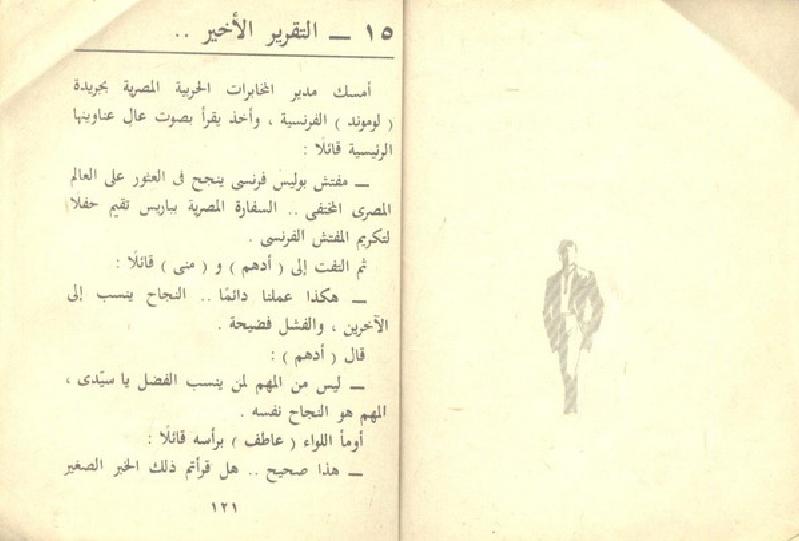 ١٥ ــ التقرير الأخير ..
أمسك مدير المخابرات الحربية المصرية بجريدة
( لوموند ) الفرنسية ، وأخذ يقرأ بصوت عالٍ عناوينها
الرئيسية قائلًا :
ــ مفتش بوليس فرنسى ينجح فى العثور على العالم
المصرى المختفى .. السفارة المصرية بباريس تقيم حفلًا
لتكريم المفتش الفرنسى .
ثم التفت إلى ( أدهم ) و ( منى ) قائلًا :
ــ هكذا عملنا دائمًا .. النجاح ينسب إلى
الآخرين ، والفشل فضيحة .
قال ( أدهم ) :
ــ ليس من المهم لمن ينسب الفضل يا سيّدى ،
المهم هو النجاح نفسه .
أومأ اللواء ( عاطف ) برأسه قائلًا :
ــ هذا صحيح .. هل قرأتم ذلك الخبر الصغير
١٢١